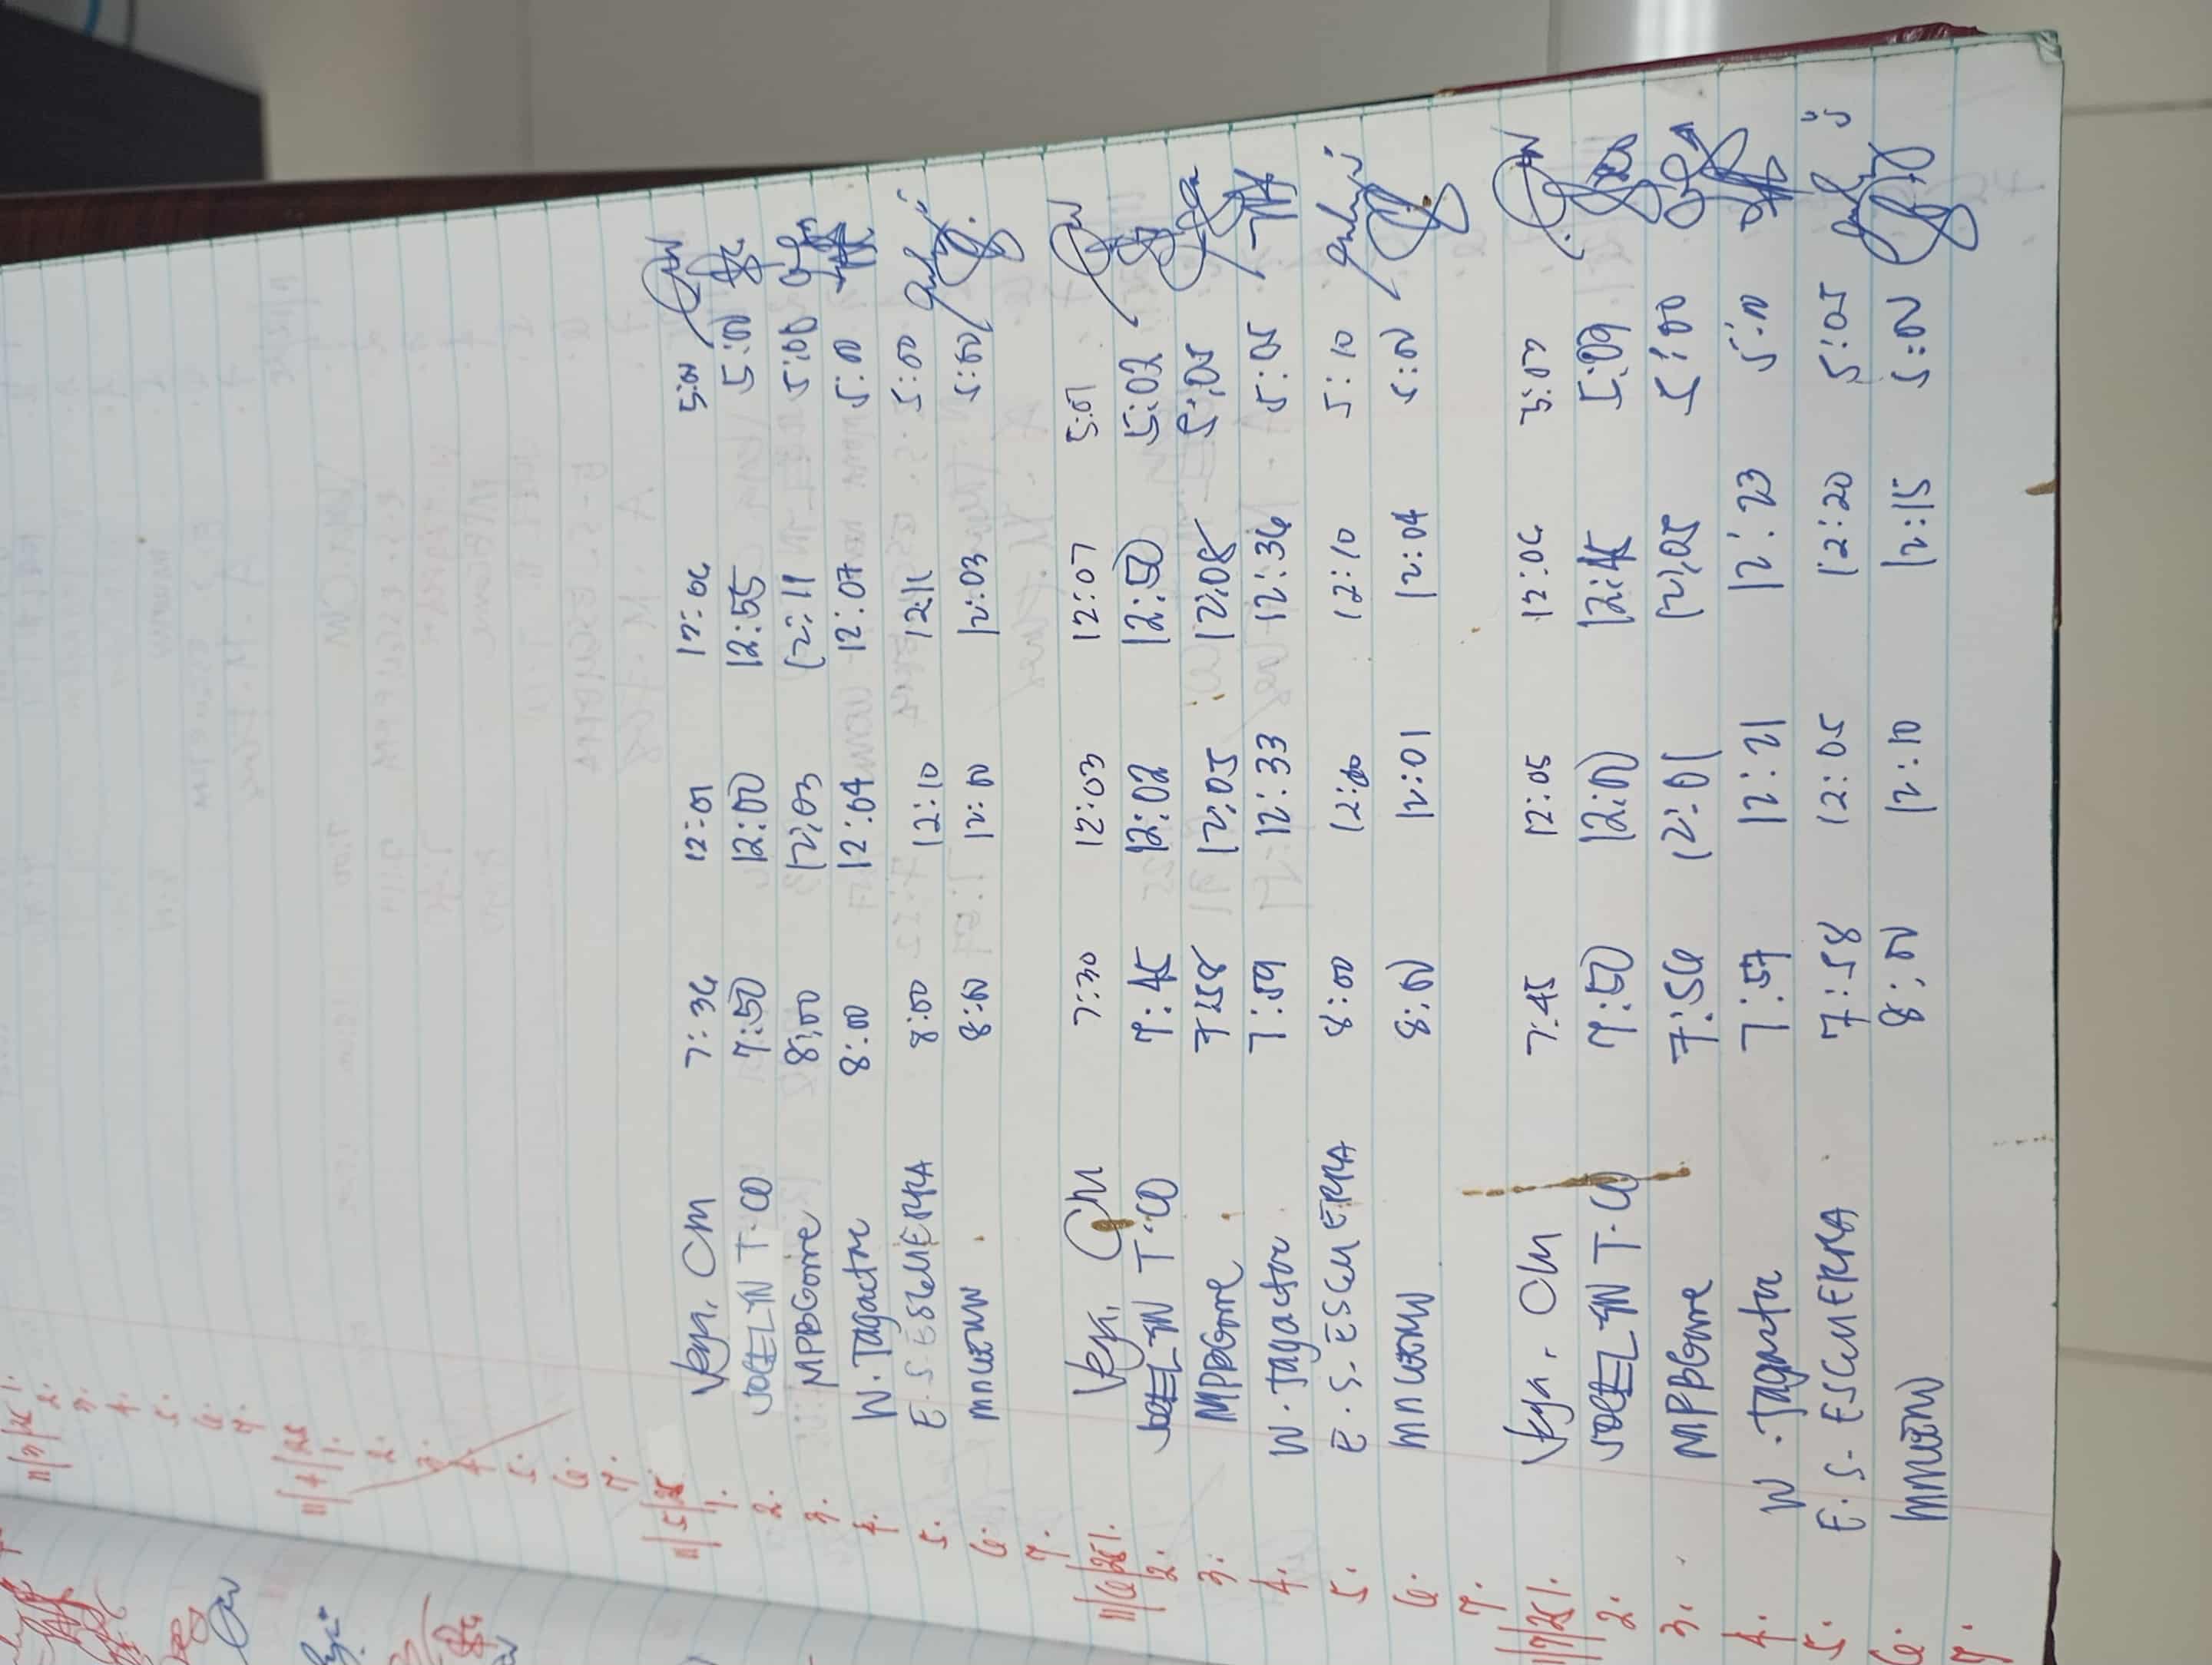 11/3/25 1.
2.
3.
4.
5.
6.
7.
11/4/25
1.
2.
3.
4.
5.
6.
7.
11/5/25
1. Vega, CM 7:36 12:01 12:06 5:00
2. JOCELYN T. CO 7:50 12:00 12:55 5:00
3. MPBGome 8:00 12:03 12:11 5:00
4. W. Tagactac 8:00 12:04 12:07 5:00
5. E. S. ESGUERRA 8:00 12:10 12:11 5:00
6. 8:00 12:00 12:03 5:00
7.
11/6/25 1. Vega, CM 7:30 12:03 12:07 5:01
2. JOCELYN T. CO 7:45 12:02 12:50 5:02
3. MPBGome 7:58 12:05 12:08 5:05
4. W. Tagactac 7:59 12:33 12:36 5:05
5. E. S. ESGUERRA 8:00 12:00 12:10 5:10
6. 8:00 12:01 12:04 5:00
7.
11/7/25 1. Vega, CM 7:45 12:05 12:06 5:00
2. JOCELYN T. CO 7:50 12:00 12:45 5:09
3. MPBGome 7:56 12:01 12:05 5:00
4. W. Tagactac 7:57 12:21 12:23 5:00
5. E. S. ESGUERRA 7:58 12:05 12:20 5:05
6. 8:00 12:10 12:15 5:00
7.